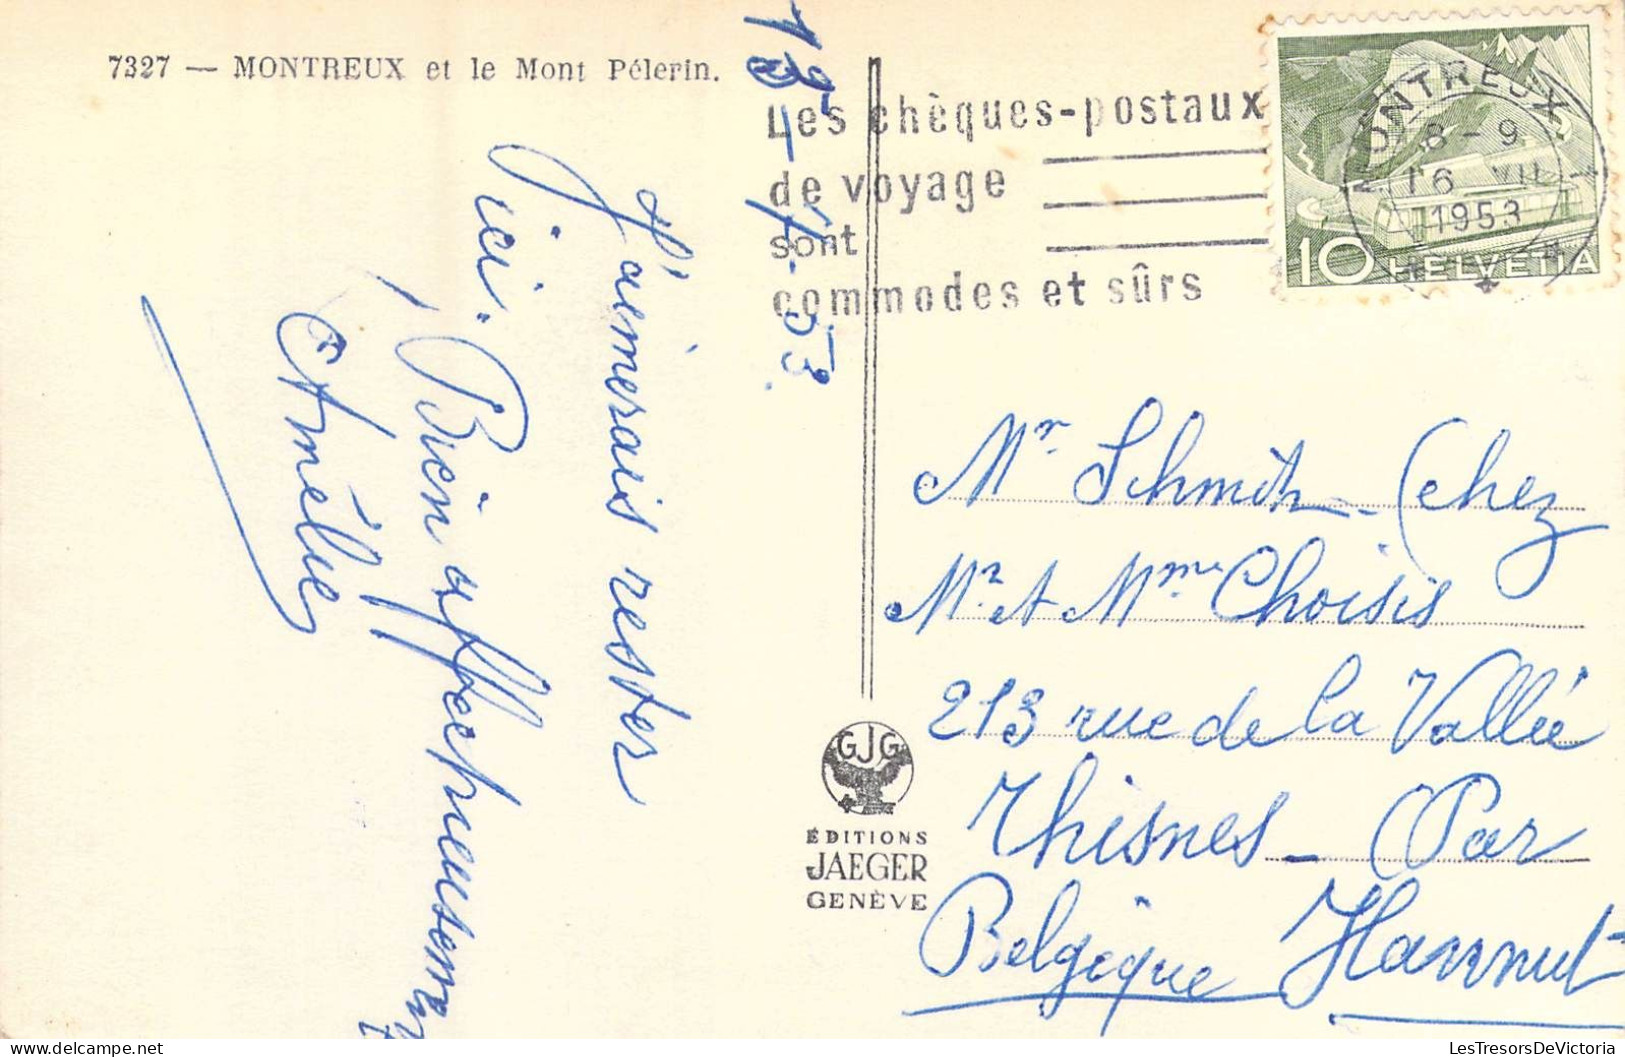 7327 — MONTREUX et le Mont Pélerin.
J'aimerais rester
ici. Bien affectueusement
Amélie
Les chèques-postaux
de voyage
sont
commodes et sûrs
MONTREUX 1
8-9
16 VII
1953
10 HELVETIA
GJG
ÉDITIONS
JAEGER
GENÈVE
Mr Schmitz - (chez
Mr et Mme Choisis
213 rue de la Vallée
Thisnes - Par
Belgique Hannut
LesTresorsDeVictoria